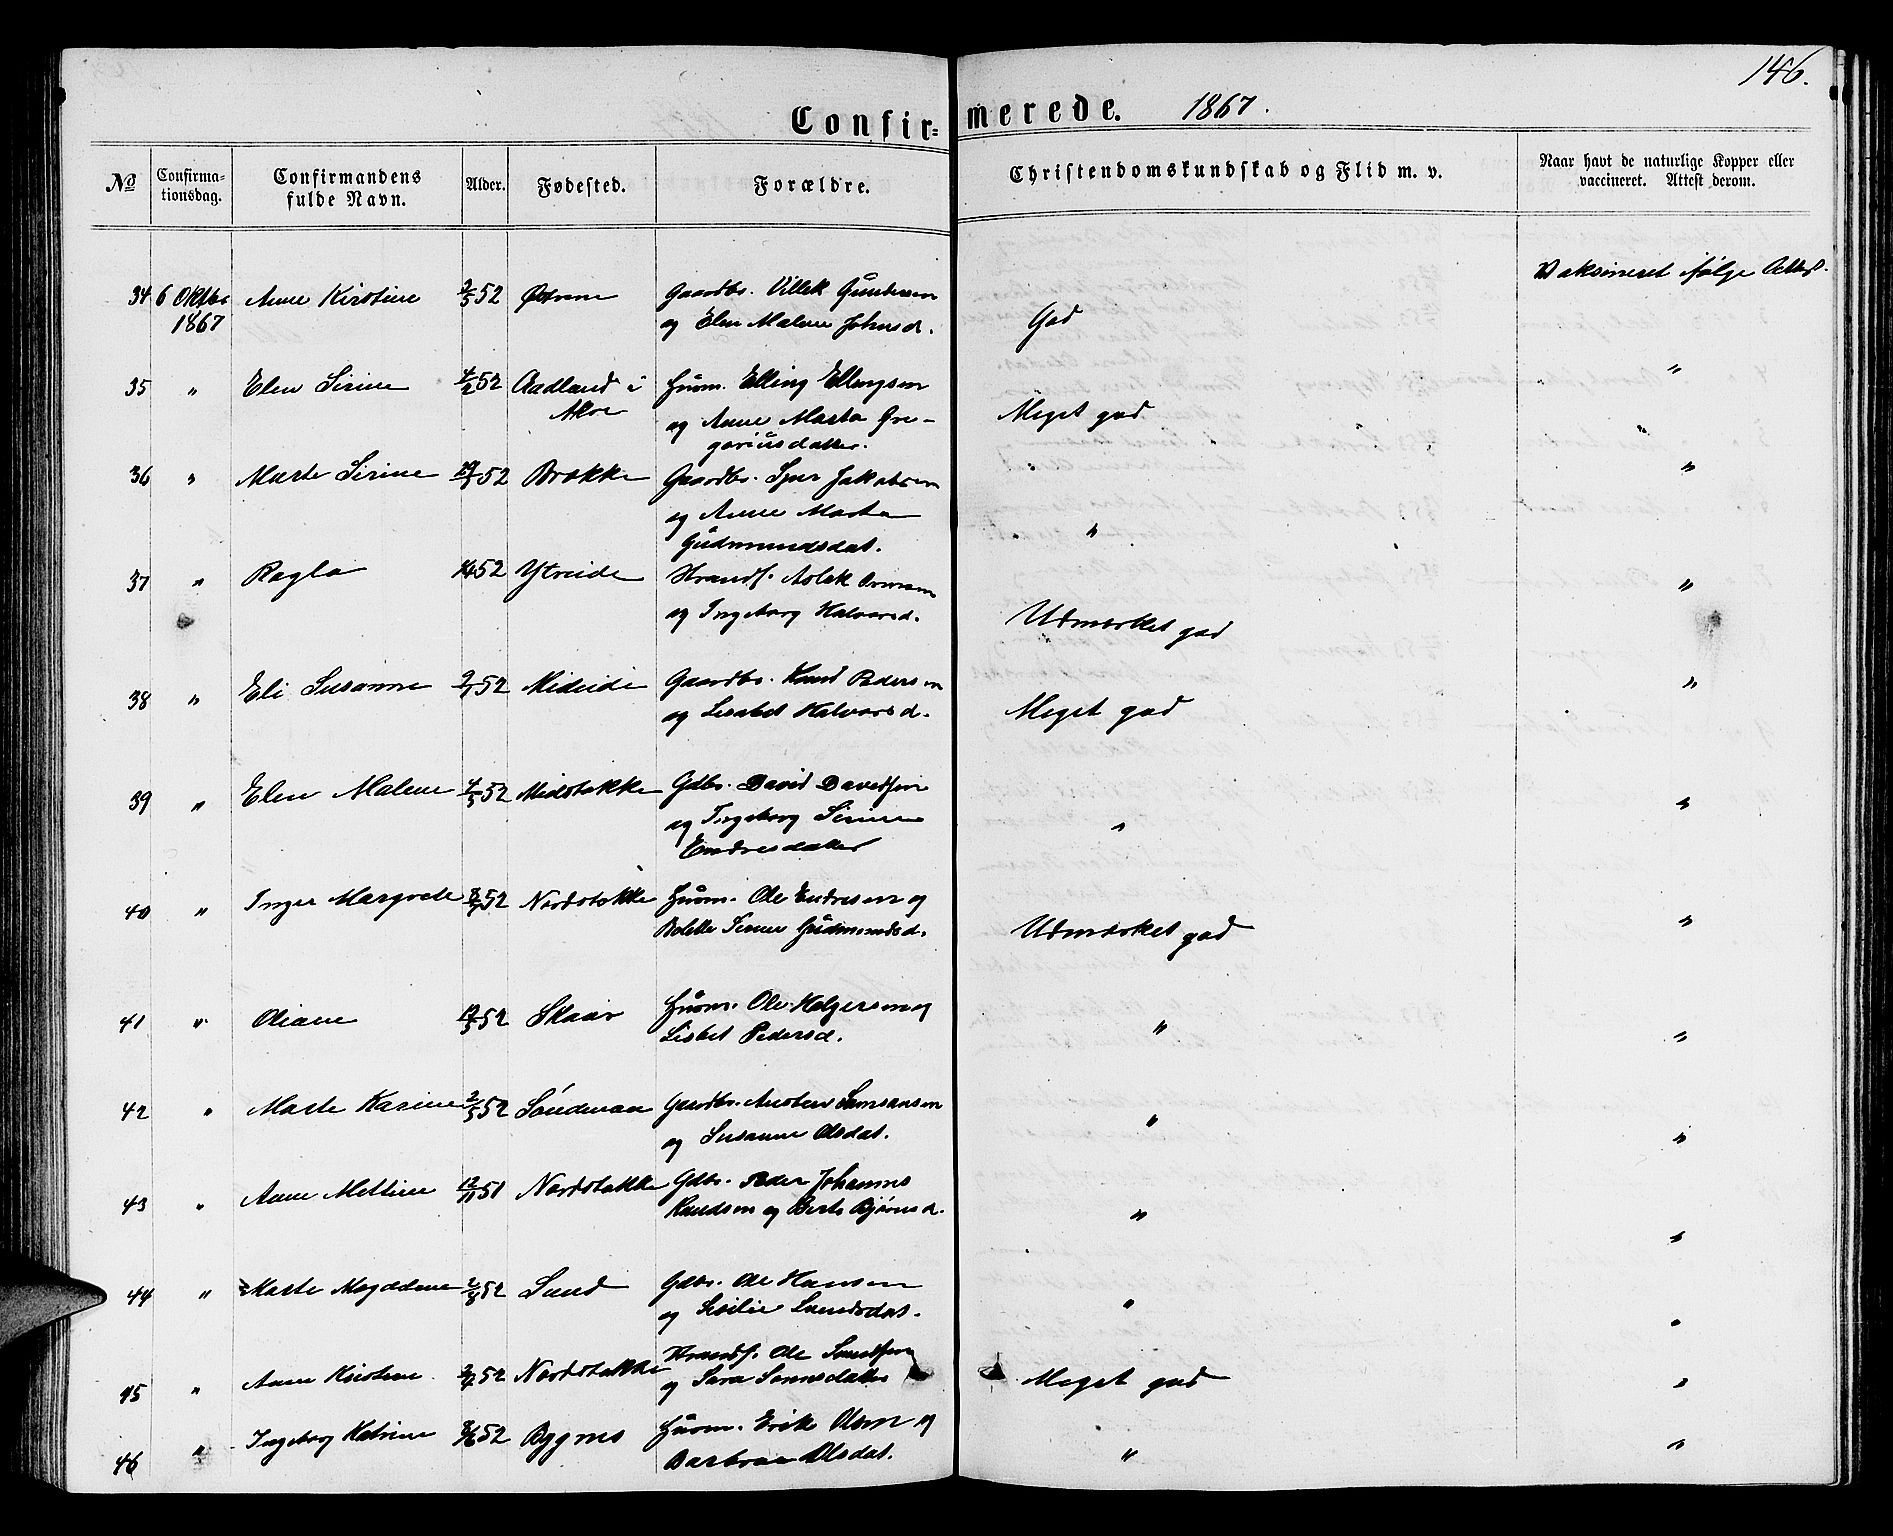 146.
Confirmerede. 1867.
No Confirmationsdag. Confirmandens fulde Navn. Alder. Fødested. Forældre. Christendomskundskab og Flid m. v. Naar havt de naturlige Kopper eller vaccineret. Attest derom.
34 6 Oktbr Anne Kirstine 2/5 52 Gaardbr. Villik Gundersen Vaksineret ifølge Attest.
1867 og Elen Malene Johnsd. God
35 " Elen Sirine 4/2 52 Aadland i Huusm. Elling Ellingsen "
og Anne Marta Gre- Meget god
goriusdatter.
36 " Marte Sirine 52 Brekke Gaardbr. Sjur Jakobsen "
og Anne Marta
Gudmundsdat. "
37 " Ragla 52 Ytreide Strandf. Aslak "
og Ingeborg Halvorsd. Udmerket god
38 " Eli Susanne 2/1 52 Mideide Gaardbr. Knud Pedersen "
og Lisabet Halvorsd. Meget god
39 " Elen Malene 4/5 52 Midtøkke Gdbr. David Davidsen "
og Ingeborg Sirine "
Endresdatter
40 " Inger Margrete 52 Nordstøkke Huusm. Ole Endresen og "
Bolette Serine Gudmundsd. Udmerket god
41 " Oliane 52 Skaar Huusm. Ole Holgersen og
Lisbet Pedersd. " "
42 " Marte Karine 2/5 52 Søndenaa Gaardbr. Anders Samsonsen
og Susanne Olsdat. " "
43 " Anne Mettine 12/11 51 Nordstøkke Gdbr. Peder Johannes
Knudsen og Berte Bjørnsd. " "
44 " Marte Magdalene 2/8 52 Sund Gdbr. Ole Hansen
og Sisilie " "
45 " Anne Kirstine 52 Nordstøkke Strandf. Ole
og Sara Meget god "
46 " Ingeborg Katrine 52 Bygnes Huusm. Erik Olsen og "
Barbroe Olsdat. "